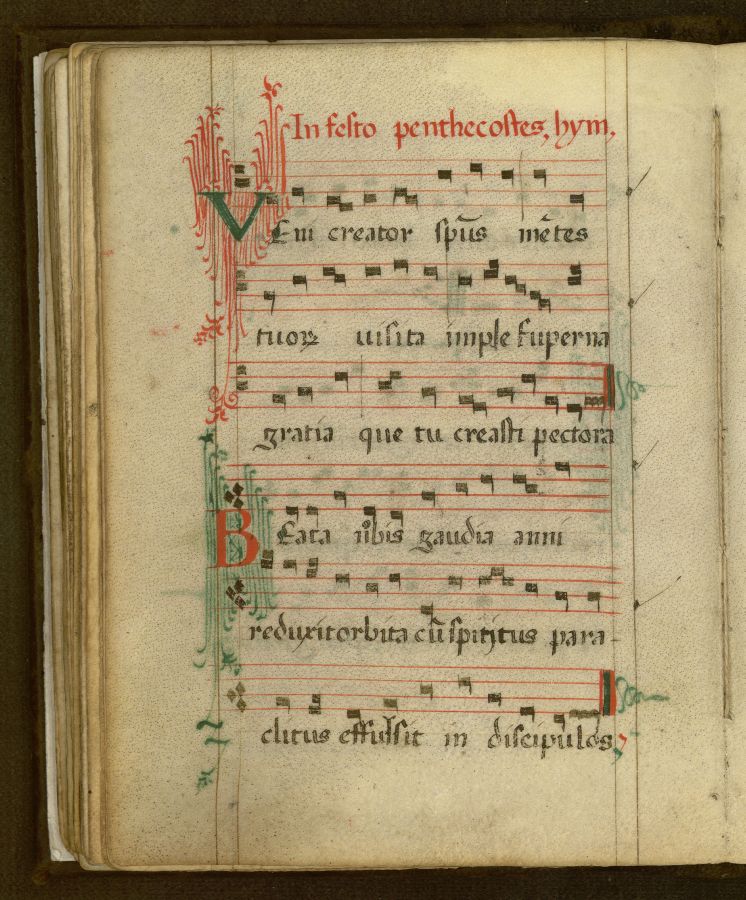 In festo penthecostes, hym,
VEni creator sp̄us mētes
tuoꝝ uisita imple superna
gratia que tu creasti pectora
BEata nobis gaudia anni
reduxit orbita cū spiritus para-
clitus effulsit in discipulos,